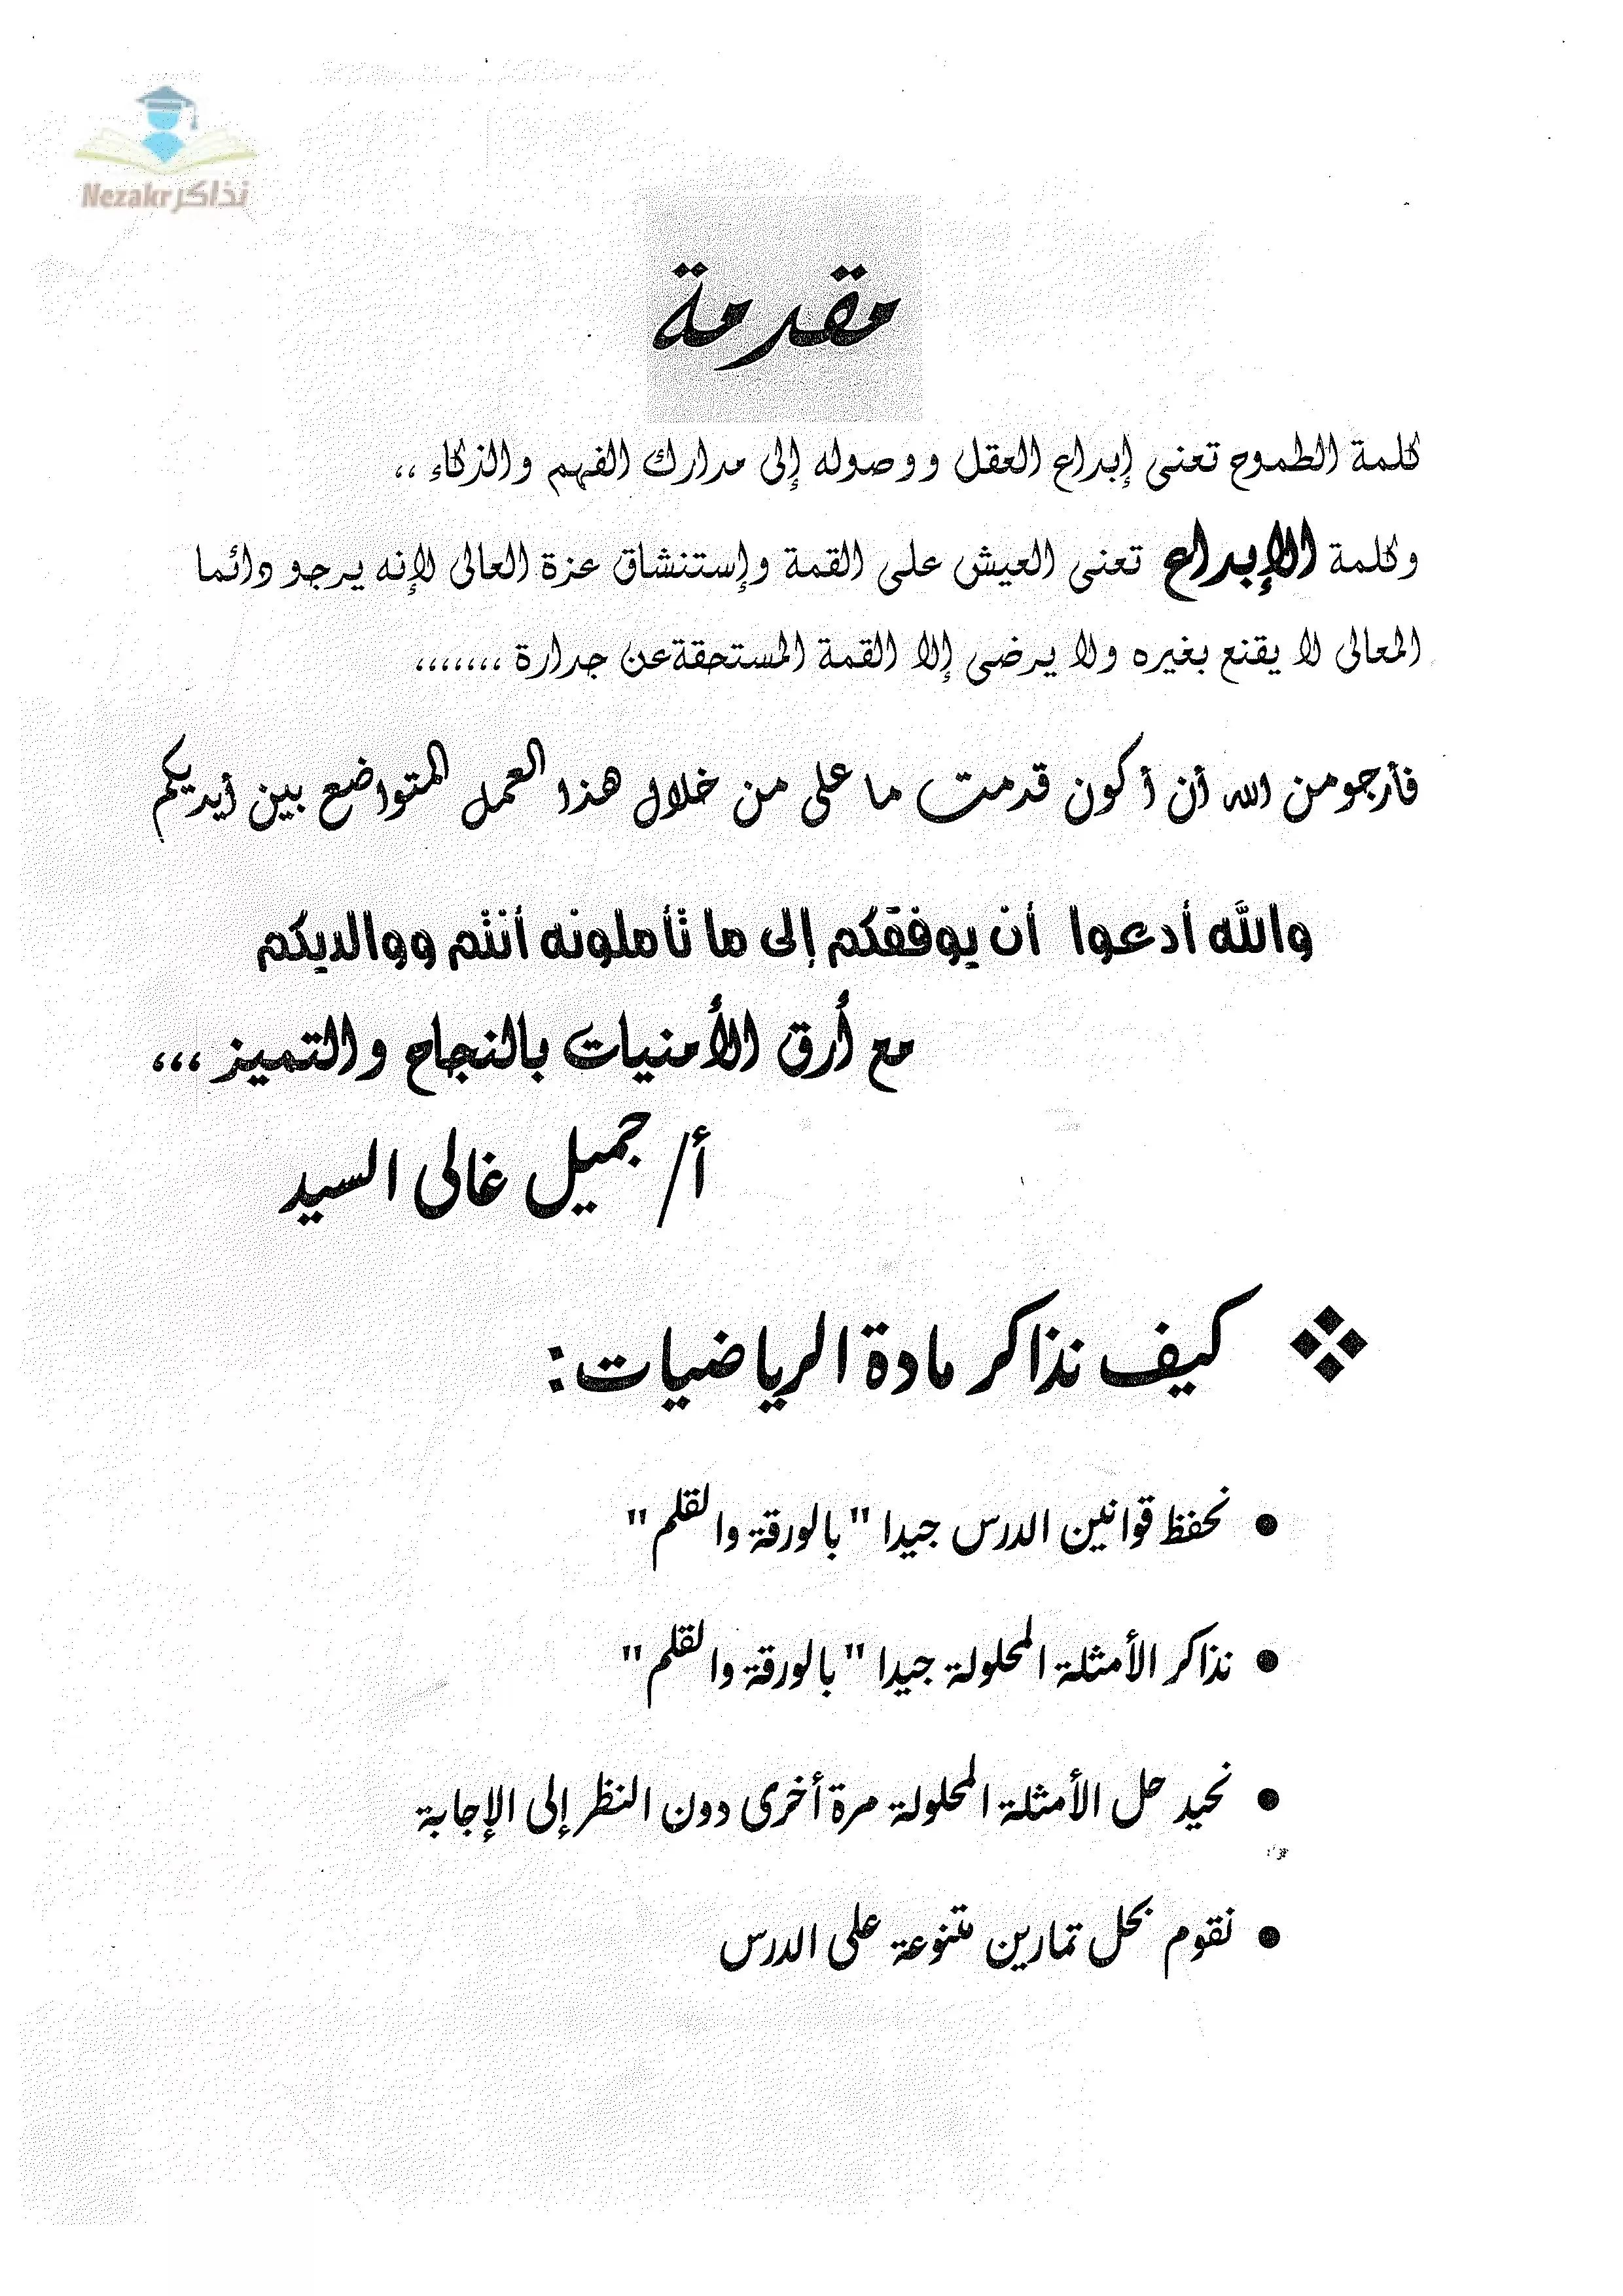 نذاكر Nezakr
مقدمة
كلمة الطموح تعنى إبداع العقل ووصوله إلى مدارك الفهم والذكاء ،،
وكلمة الإبداع تعنى العيش على القمة وإستنشاق عزة العالى لإنه يرجو دائما
المعالى لا يقنع بغيره ولا يرضى إلا القمة المستحقة عن جدارة ،،،،،،،
فأرجو من الله أن أكون قدمت ما على من خلال هذا العمل المتواضع بين أيديكم
والله أدعوا أن يوفقكم إلى ما تأملونه أنتم ووالديكم
مع أرق الأمنيات بالنجاح والتميز ،،،
أ/ جميل غالى السيد
❖ كيف نذاكر مادة الرياضيات:
• نحفظ قوانين الدرس جيدا "بالورقة والقلم"
• نذاكر الأمثلة المحلولة جيدا "بالورقة والقلم"
• نحيد حل الأمثلة المحلولة مرة أخرى دون النظر إلى الإجابة
• نقوم بحل تمارين متنوعة على الدرس